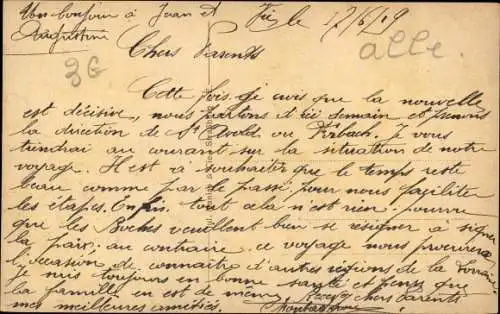 Un bonjour à Jean et
Augustine
Vic le 17/6/19
alle
3G
Chers Parents
Cette fois je crois que la nouvelle
est décisive, nous partons d'ici demain et prenons
la direction de St Avold ou Forbach. Je vous
tiendrai au courant sur la situation de notre
voyage. Il est à souhaiter que le temps reste
beau comme par le passé pour nous faciliter
les étapes. Enfin tout cela n'est rien pourvu
que les Boches veuillent bien se résigner à signer
la paix, au contraire ce voyage nous procurera
l'occasion de connaître d'autres régions de la Lorraine
Je suis toujours en bonne santé et pense que
la famille en est de même. Recevez chers Parents
mes meilleures amitiés.